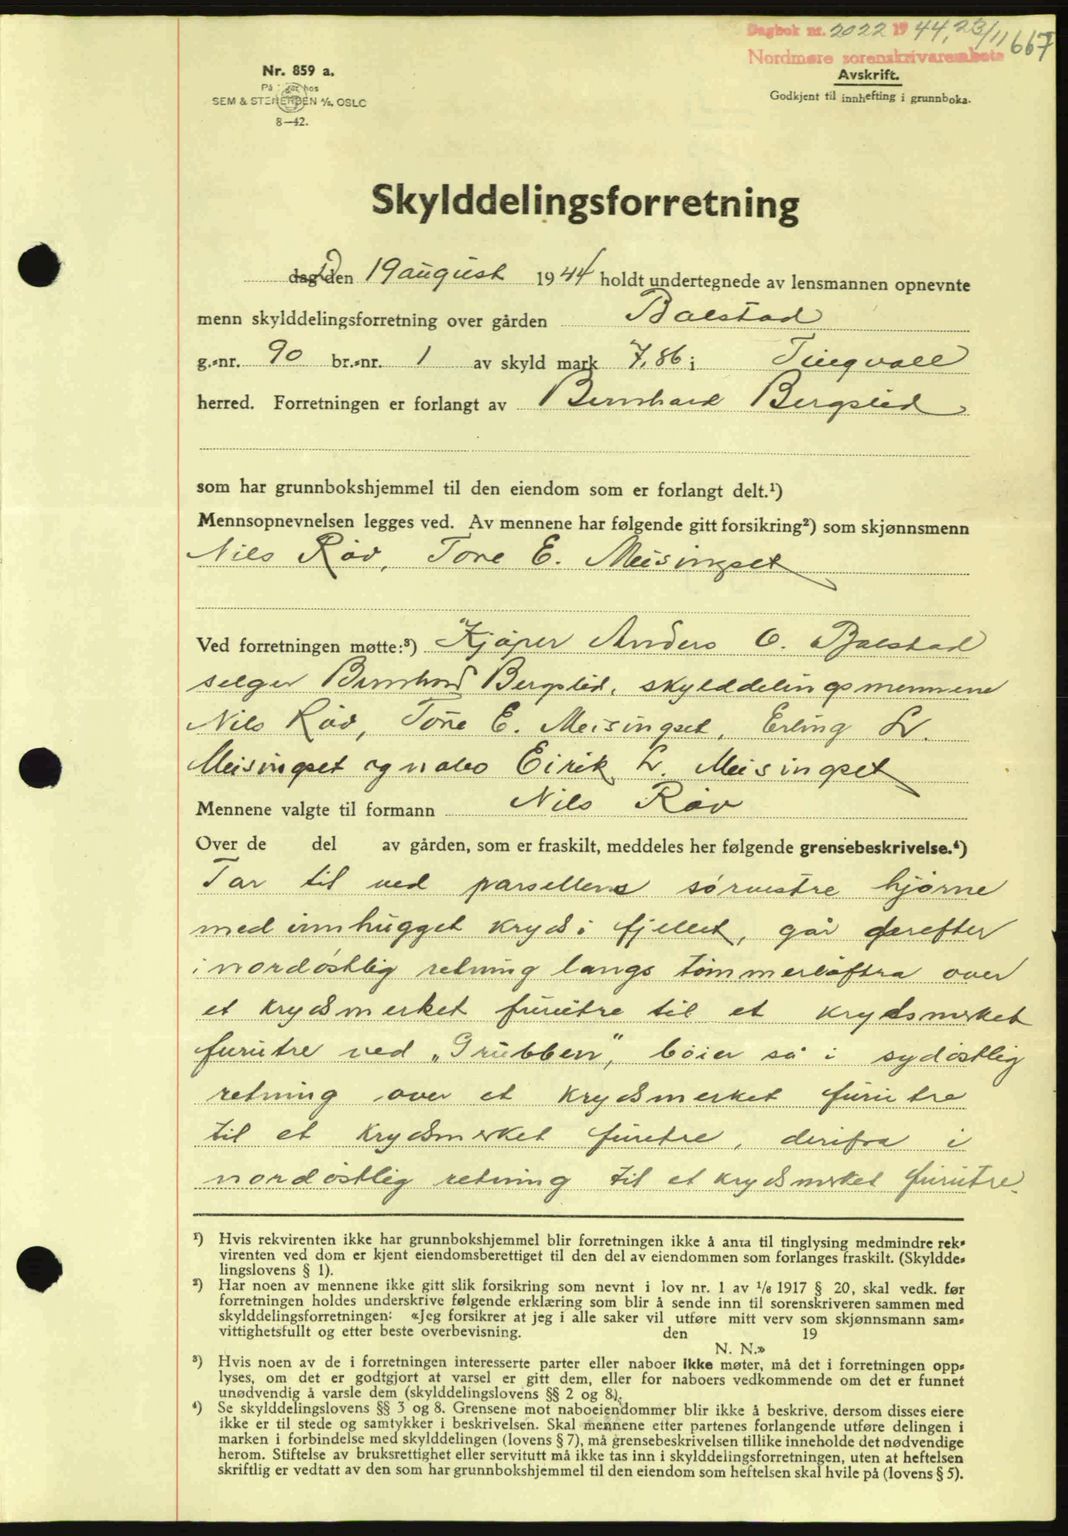 Dagbok nr. 2022 19 44, 23/11
667
Nordmøre sorenskrivarembete
Nr. 859 a.
På hos
SEM & STENERSEN A/S, OSLO
8—42.
Avskrift.
Godkjent til innhefting i grunnboka.
Skylddelingsforretning
dag Den 19 august 1944 holdt undertegnede av lensmannen opnevnte
menn skylddelingsforretning over gården Balstad
g.-nr. 90 br.-nr. 1 av skyld mark 7,86 i Tingvoll
herred. Forretningen er forlangt av Bernhard Bergslid
som har grunnbokshjemmel til den eiendom som er forlangt delt.¹)
Mennsopnevnelsen legges ved. Av mennene har følgende gitt forsikring²) som skjønnsmenn
Nils Røv, Tore E. Meisingset
Ved forretningen møtte:³) Kjøper Anders O. Balstad
selger Bernhard Bergslid, skylddelingsmennene
Nils Røv, Tore E. Meisingset, Erling L.
Meisingset og nabo Eirik L. Meisingset
Mennene valgte til formann Nils Røv
Over de del av gården, som er fraskilt, meddeles her følgende grensebeskrivelse.⁴)
Tar til ved parsellens sørvestre hjørne
med innhugget kryds i fjellet, går derefter
i nordøstlig retning langs tømmerløftra over
et krydsmerket furutre til et krydsmerket
furutre ved „Grubben", bøier så i sydøstlig
retning over et krydsmerket furutre
til et krydsmerket furutre, derifra i
nordøstlig retning til et krydsmerket furutre.
¹) Hvis rekvirenten ikke har grunnbokshjemmel blir forretningen ikke å anta til tinglysing medmindre rek-
virenten ved dom er kjent eiendomsberettiget til den del av eiendommen som forlanges fraskilt. (Skyldde-
lingslovens § 1).
²) Har noen av mennene ikke gitt slik forsikring som nevnt i lov nr. 1 av 1/6 1917 § 20, skal vedk. før
forretningen holdes underskrive følgende erklæring som blir å sende inn til sorenskriveren sammen med
skylddelingsforretningen: «Jeg forsikrer at jeg i alle saker vil utføre mitt verv som skjønnsmann sam-
vittighetsfullt og etter beste overbevisning. den 19
N. N.»
³) Hvis noen av de i forretningen interesserte parter eller naboer ikke møter, må det i forretningen opp-
lyses, om det er godtgjort at varsel er gitt dem, eller for naboers vedkommende om det er funnet
unødvendig å varsle dem (skylddelingslovens §§ 2 og 8).
⁴) Se skylddelingslovens §§ 3 og 8. Grensene mot naboeiendommer blir ikke å beskrive, dersom disses eiere
ikke er til stede og samtykker i beskrivelsen. Skal mennene etter partenes forlangende utføre delingen i
marken i forbindelse med skylddelingen (lovens § 7), må grensebeskrivelsen tillike inneholde det nødvendige
herom. Stiftelse av bruksrettighet eller servitutt må ikke tas inn i skylddelingsforretningen, uten at heftelsen
skriftlig er vedtatt av den som har grunnbokshjemmel til den eiendom som heftelsen skal hvile på (lovens § 5).